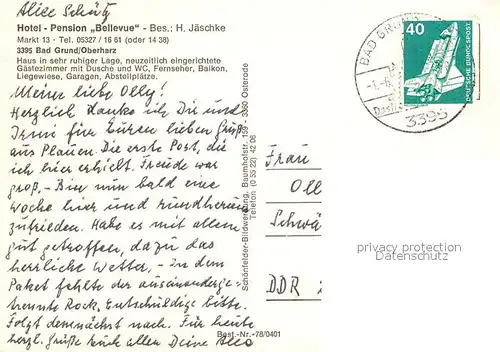 Alice Schütz
Hotel - Pension „Bellevue" - Bes.: H. Jäschke
Markt 13 · Tel. 05327 / 16 61 (oder 14 38)
3395 Bad Grund/Oberharz
Haus in sehr ruhiger Lage, neuzeitlich eingerichtete
Gästezimmer mit Dusche und WC, Fernseher, Balkon,
Liegewiese, Garagen, Abstellplätze.
Meine liebe Olly!
Herzlich danke ich Dir und
Irmi für Euren lieben Gruß
aus Plauen. Die erste Post, die
ich hier erhielt. Freude war
groß. - Bin nun bald eine
Woche hier und rundherum
zufrieden. Habe es mit allem
gut getroffen, dazu das
herrliche Wetter. - In dem
Paket fehlte der auseinanderge-
trennte Rock, Entschuldige bitte.
Folgt demnächst nach. Für heute
herzl. Grüße Euch allen Deine
Best.-Nr.-78/0401
Schönfelder-Bildwerbung, Baumhofstr. 159 · 3360 Osterode
Telefon (0 55 22) 42 06
BAD GRUND
3395
40
DEUTSCHE BUNDESPOST
Frau
Oll
Schwä
DDR
privacy protection
Datenschutz